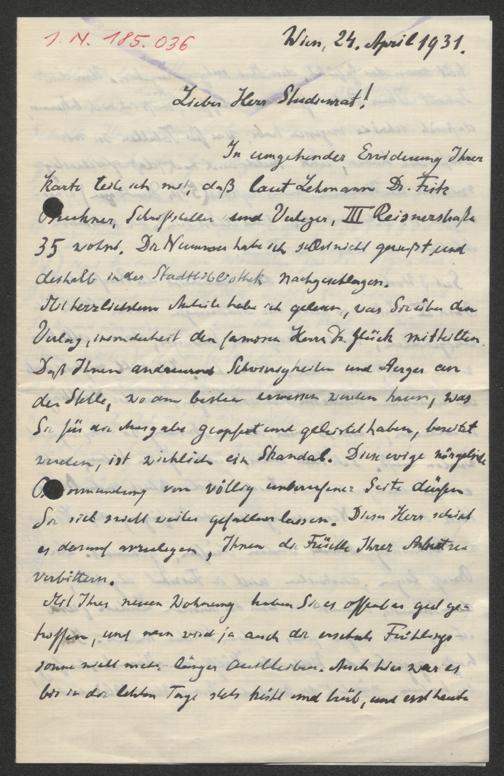 I. N. 185.036
Wien, 24. April 1931.
Lieber Herr Studienrat!
In umgehender Erwiderung Ihrer
Karte teile ich mit, daß laut Lehmann Dr. Fritz
Bruckner, Schriftsteller und Verleger, III Reisnerstraße
35 wohnt. Die Nummer habe ich selbst nicht gewußt und
deshalb in der Stadtbibliothek nachgeschlagen.
Mit herzlichstem Anteile habe ich gelesen, was Sie über den
Verlag, insonderheit den famosen Herrn Dr. Glück mitteilten.
Daß Ihnen andauernd Schwierigkeiten und Aerger an
der Stelle, wo am besten ermessen werden kann, was
Sie für die Ausgabe geopfert und geleistet haben, bereitet
werden, ist wirklich ein Skandal. Diese ewige nörgelnde
Bevormundung von völlig unberufener Seite dürfen
Sie sich nicht weiter gefallen lassen. Dieser Herr scheint
es darauf anzulegen, Ihnen die Früchte Ihrer Arbeit zu
verbittern.
Mit Ihrer neuen Wohnung haben Sie es offenbar gut ge-
troffen, und nun wird ja auch die ersehnte Frühlings-
sonne nicht mehr länger ausbleiben. Auch hier war es
bis in die letzten Tage stets kühl und trüb, und erst heute